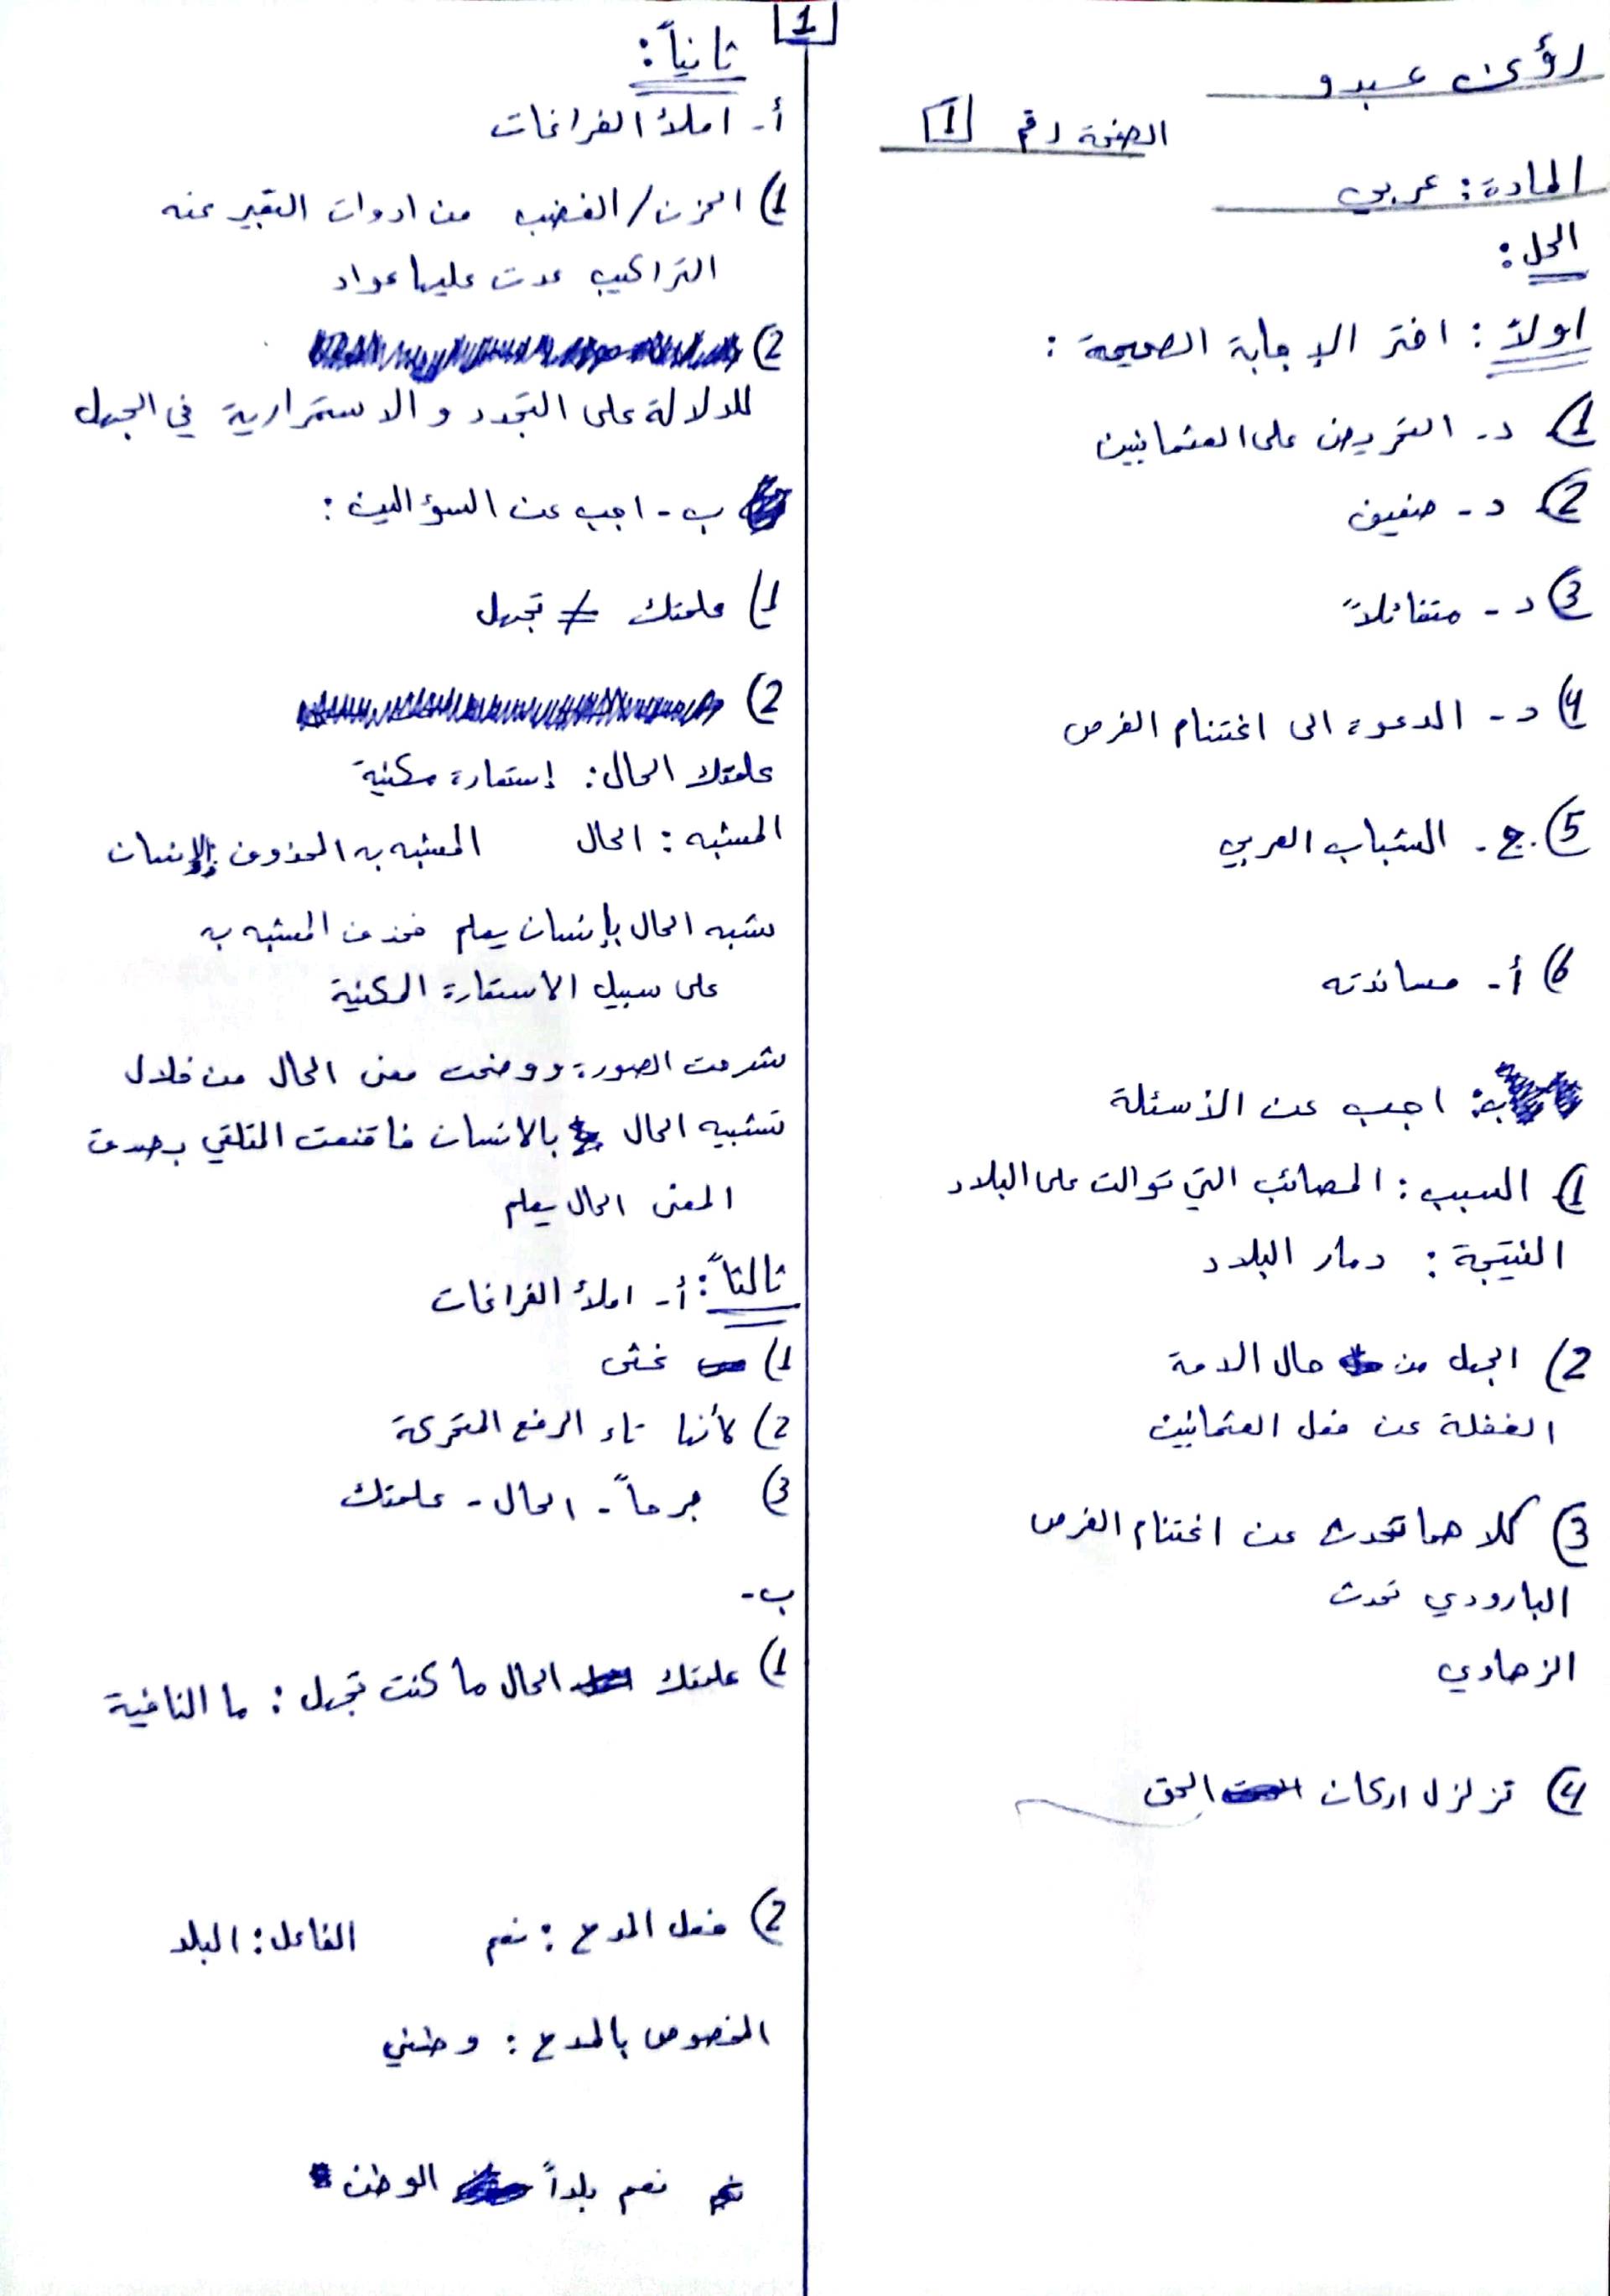 1
لؤي عبدو
الصفحة رقم 1
المادة: عربي
الحل:
اولاً: اختر الإجابة الصحيحة:
1) د- التحريض على العثمانيين
2) د- ضعيف
3) د- متفائلاً
4) د- الدعوة الى اغتنام الفرص
5) ج- الشباب العربي
6) أ- مساندته
ب: اجب عن الأسئلة
1) السبب: المصائب التي توالت على البلاد
النتيجة: دمار البلاد
2) الجهل من حال الامة
الغفلة عن فعل العثمانيين
3) كلاهما تحدث عن اغتنام الفرص
البارودي تحدث
الزهاوي
4) تزلزل اركان الحق
ثانياً:
أ- املأ الفراغات
1) الحزن/الغضب من ادوات التعبير عنه
التراكيب عدت عليها عواد
2)
للدلالة على التجدد و الاستمرارية في الجهل
ب- اجب عن السؤالين:
1) علمتك ≠ تجهل
2)
علمتك الحال: إستعارة مكنية
المشبه: الحال المشبه به المحذوف: الإنسان
شبه الحال بإنسان يعلم فحذف المشبه به
على سبيل الاستعارة المكنية
شرحت الصورة ووضحت معنى الحال من خلال
تشبيه الحال بالانسان فاقنعت المتلقي بصدق
المعنى الحال يعلم
ثالثاً: أ- املأ الفراغات
1) غشى
2) لأنها تاء الرفع المتحركة
3) جرحاً - الحال - علمتك
ب-
1) علمتك الحال ما كنت تجهل: ما النافية
2) فعل المدح: نعم الفاعل: البلد
المخصوص بالمدح: وطني
نعم بلداً الوطن